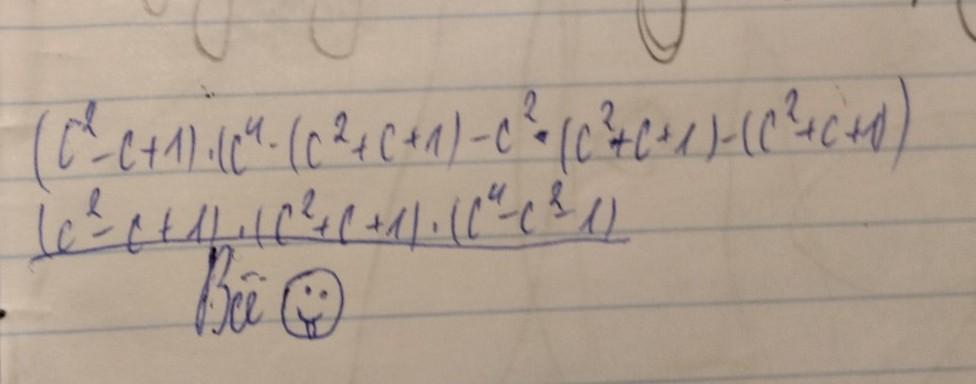 (c²-c+1)·(c⁴·(c²+c+1)-c²·(c²+c+1)-(c²+c+1))
(c²-c+1)·(c²+c+1)·(c⁴-c²-1)
Всё